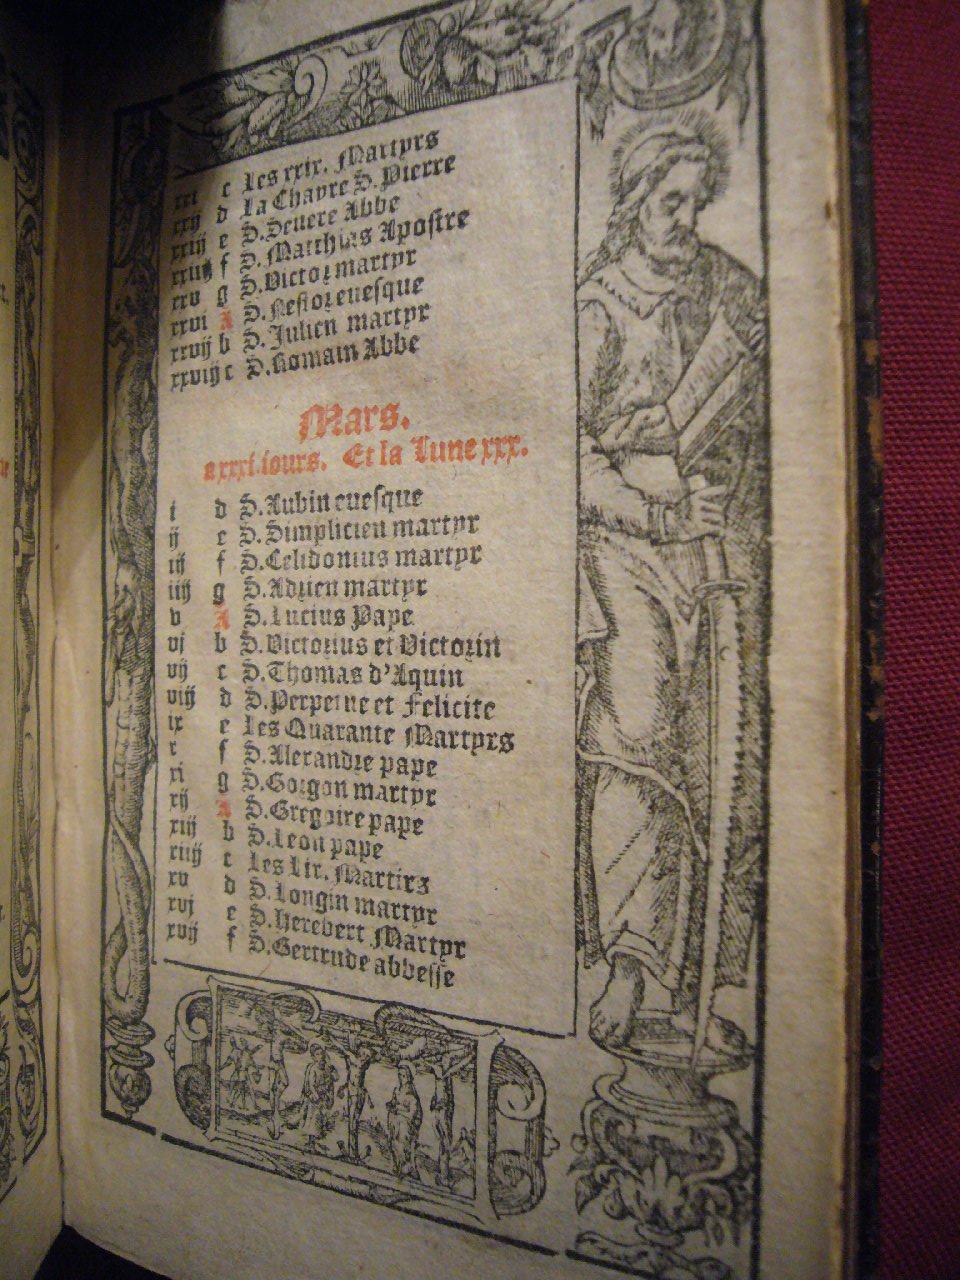 xxi c Les xxix. Martyrs
xxij d La Chayre S. Pierre
xxiij e S. Seuere Abbe
xxiiij f S. Matthias Apostre
xxv g S. Victor martyr
xxvi A S. Nestor euesque
xxvij b S. Julien martyr
xxviij c S. Romain Abbe
Mars.
a xxxi. iours. Et la Lune xxx.
i d S. Aubin euesque
ij e S. Simplicien martyr
iij f S. Celidonius martyr
iiij g S. Adrien martyr
v A S. Lucius Pape
vj b S. Victorius et Victorin
vij c S. Thomas d'Aquin
viij d S. Perpetue et Felicite
ix e Les Quarante Martyrs
x f S. Alexandre pape
xi g S. Gorgon martyr
xij A S. Gregoire pape
xiij b S. Leon pape
xiiij c Les Lix. Martirs
xv d S. Longin martyr
xvj e S. Herebert Martyr
xvij f S. Gertrude abbesse